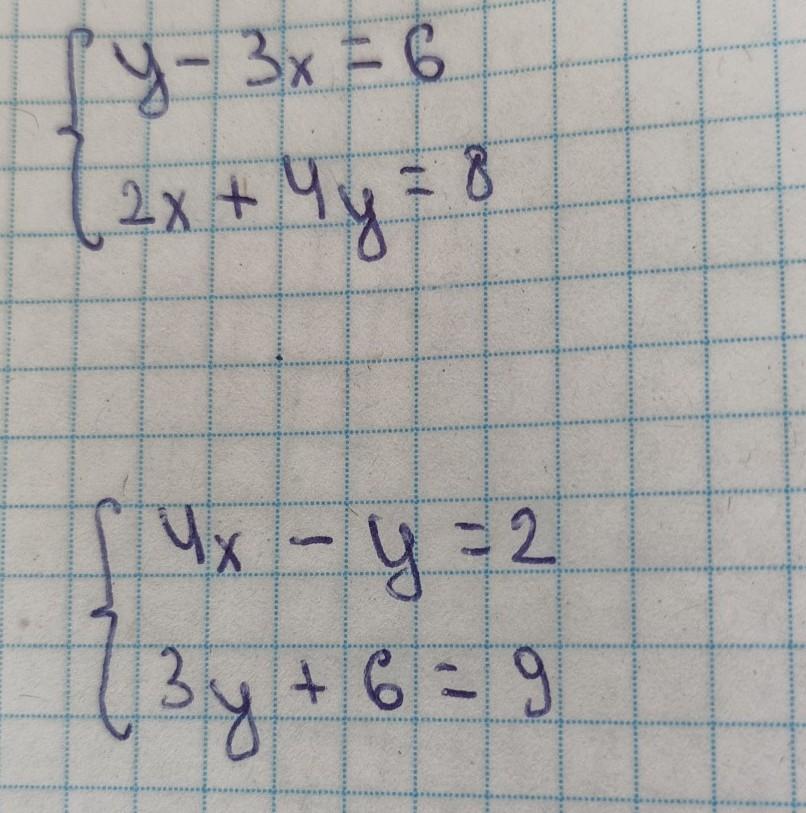 y - 3x = 6
2x + 4y = 8
4x - y = 2
3y + 6 = 9